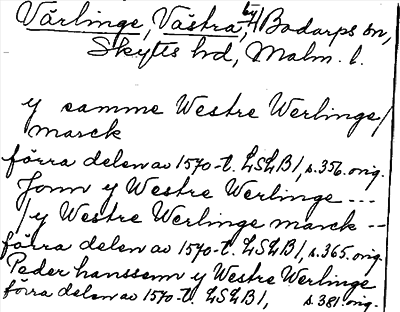 Värlinge, Västra, by, Bodarps sn,
Skytts hd, Malm. l.
y samme Westre Werlinge /
marck
förra delen av 1570-t. LSLB1, s.356. orig.
Jonn y Westre Werlinge ---
/ y Westre Werlinge marck --
förra delen av 1570-t. LSLB1, s.365. orig.
Peder hanssenn y Westre Werlinge
förra delen av 1570-t. LSLB1, s.381. orig.